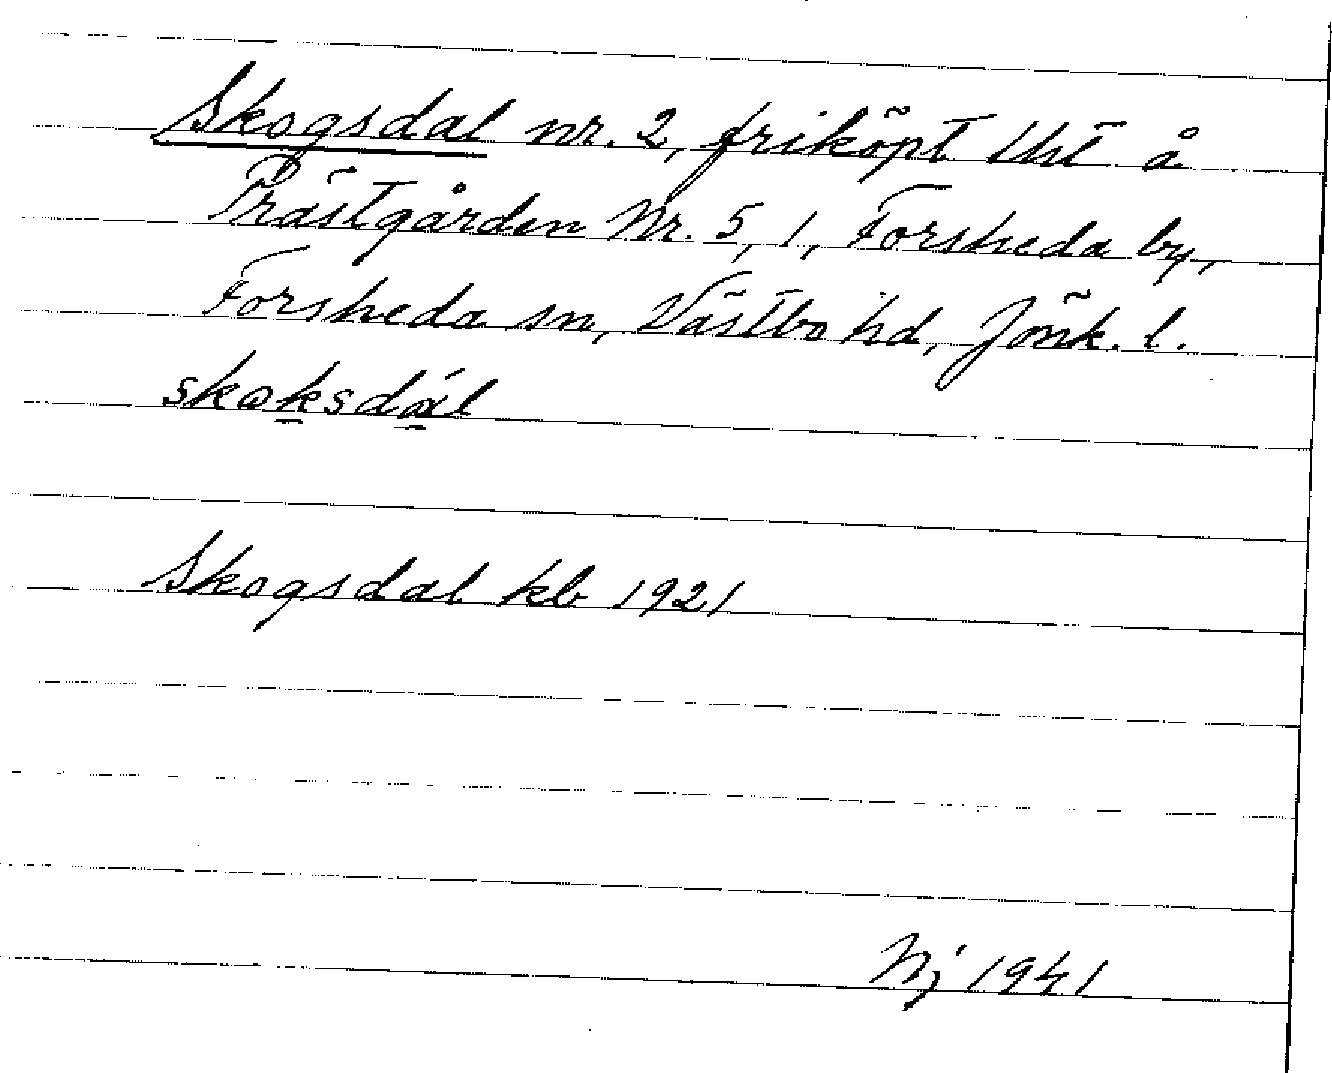 Skogsdal nr. 2, friköpt lht å
Prästgården Nr. 5, 1, Forsheda by,
Forsheda sn, Västbo hd, Jönk. l.
skoksdál
Skogsdal kb 1921
Nj 1941